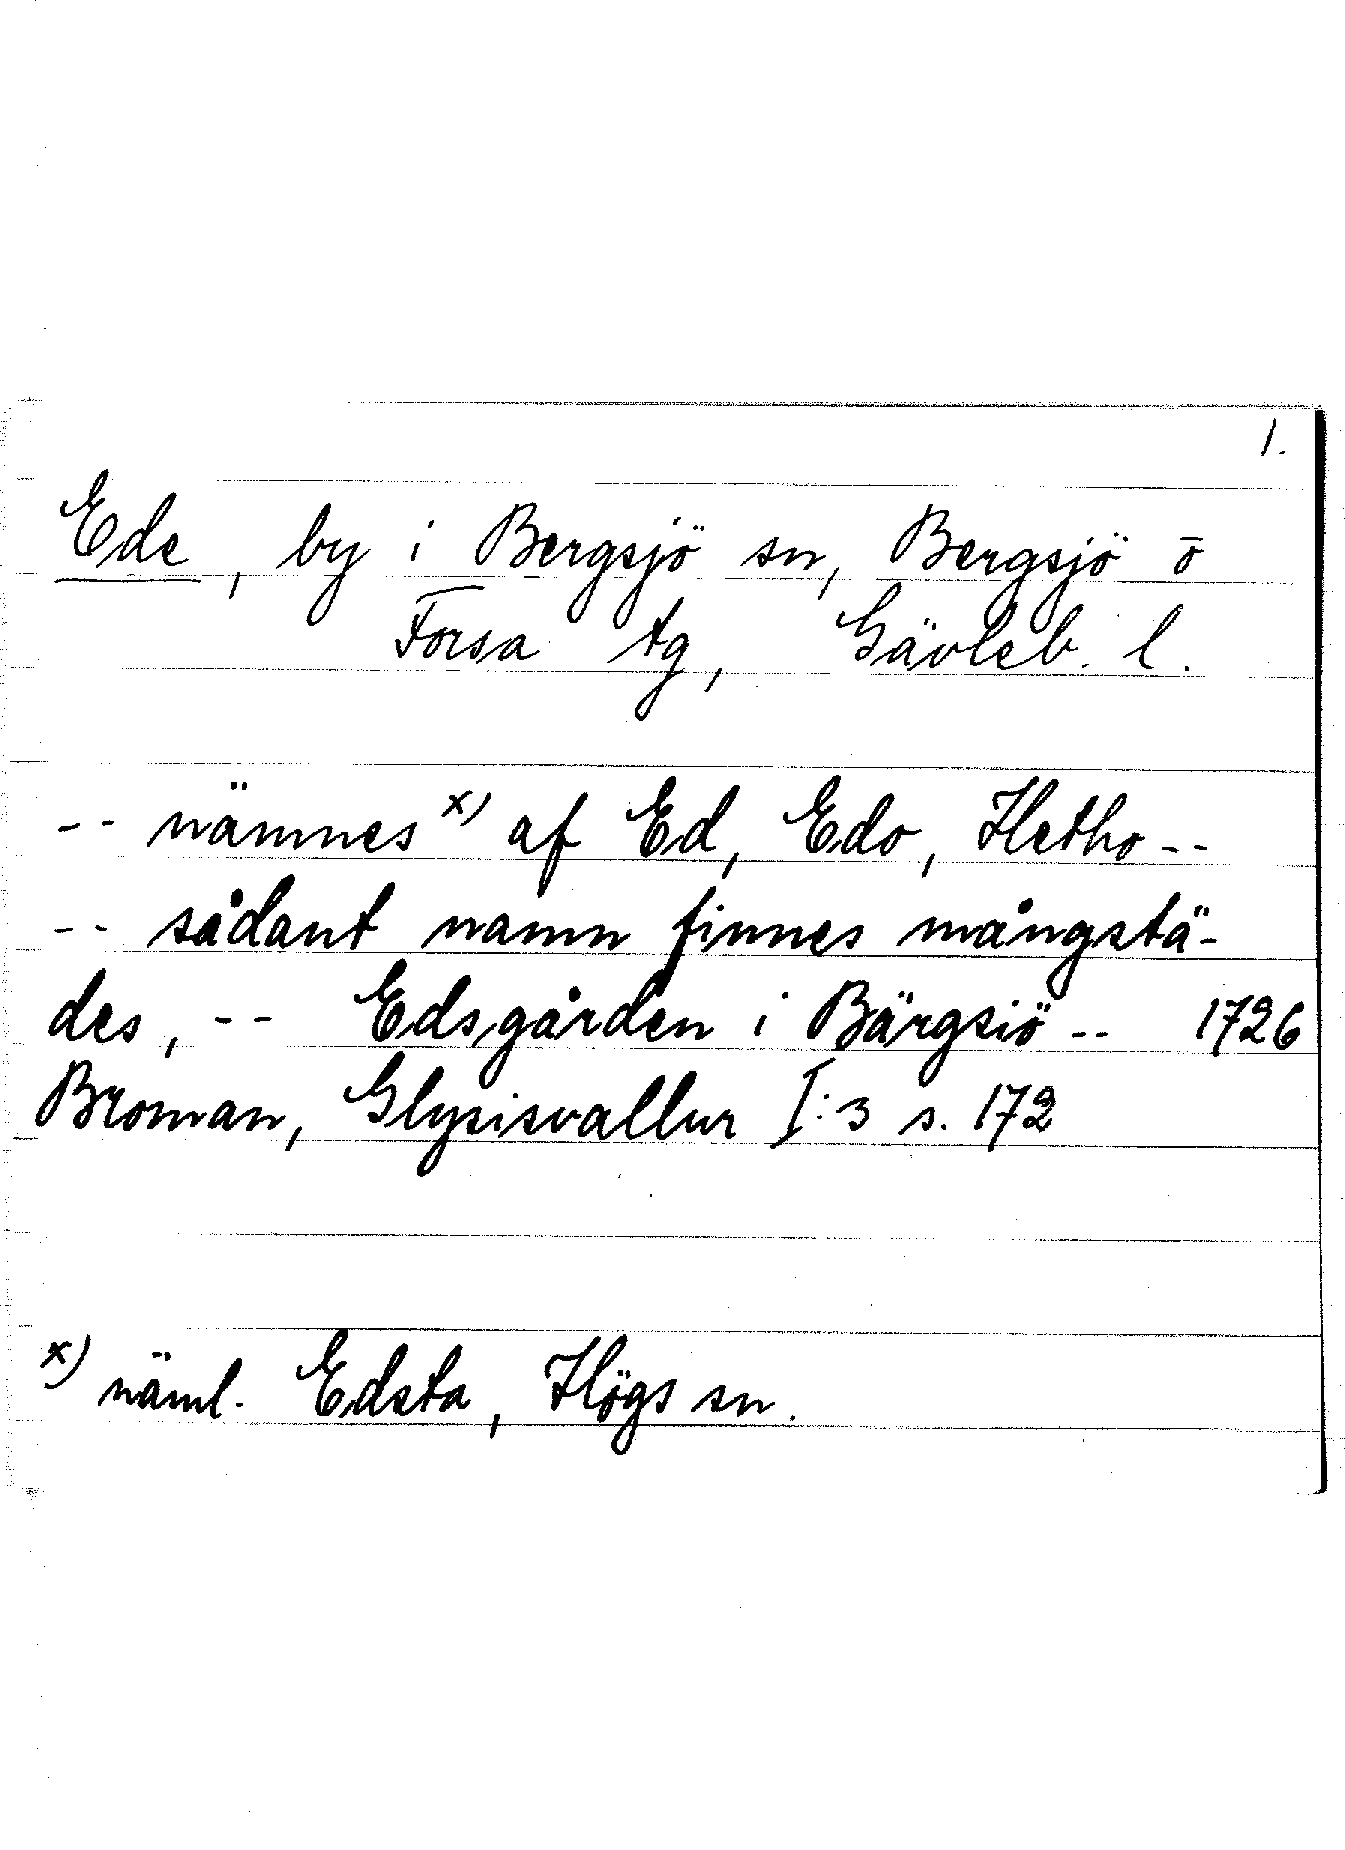 1.
Ede, by i Bergsjö sn, Bergsjö o
Forsa tg, Gävleb. l.
-- nämnes x) af Ed, Edo, Hetho --
-- sådant namn finnes mångstä-
des, -- Edsgården i Bärgsiö -- 1726
Broman, Glysisvallur I:3 s. 172
x) näml. Edsta, Högs sn.